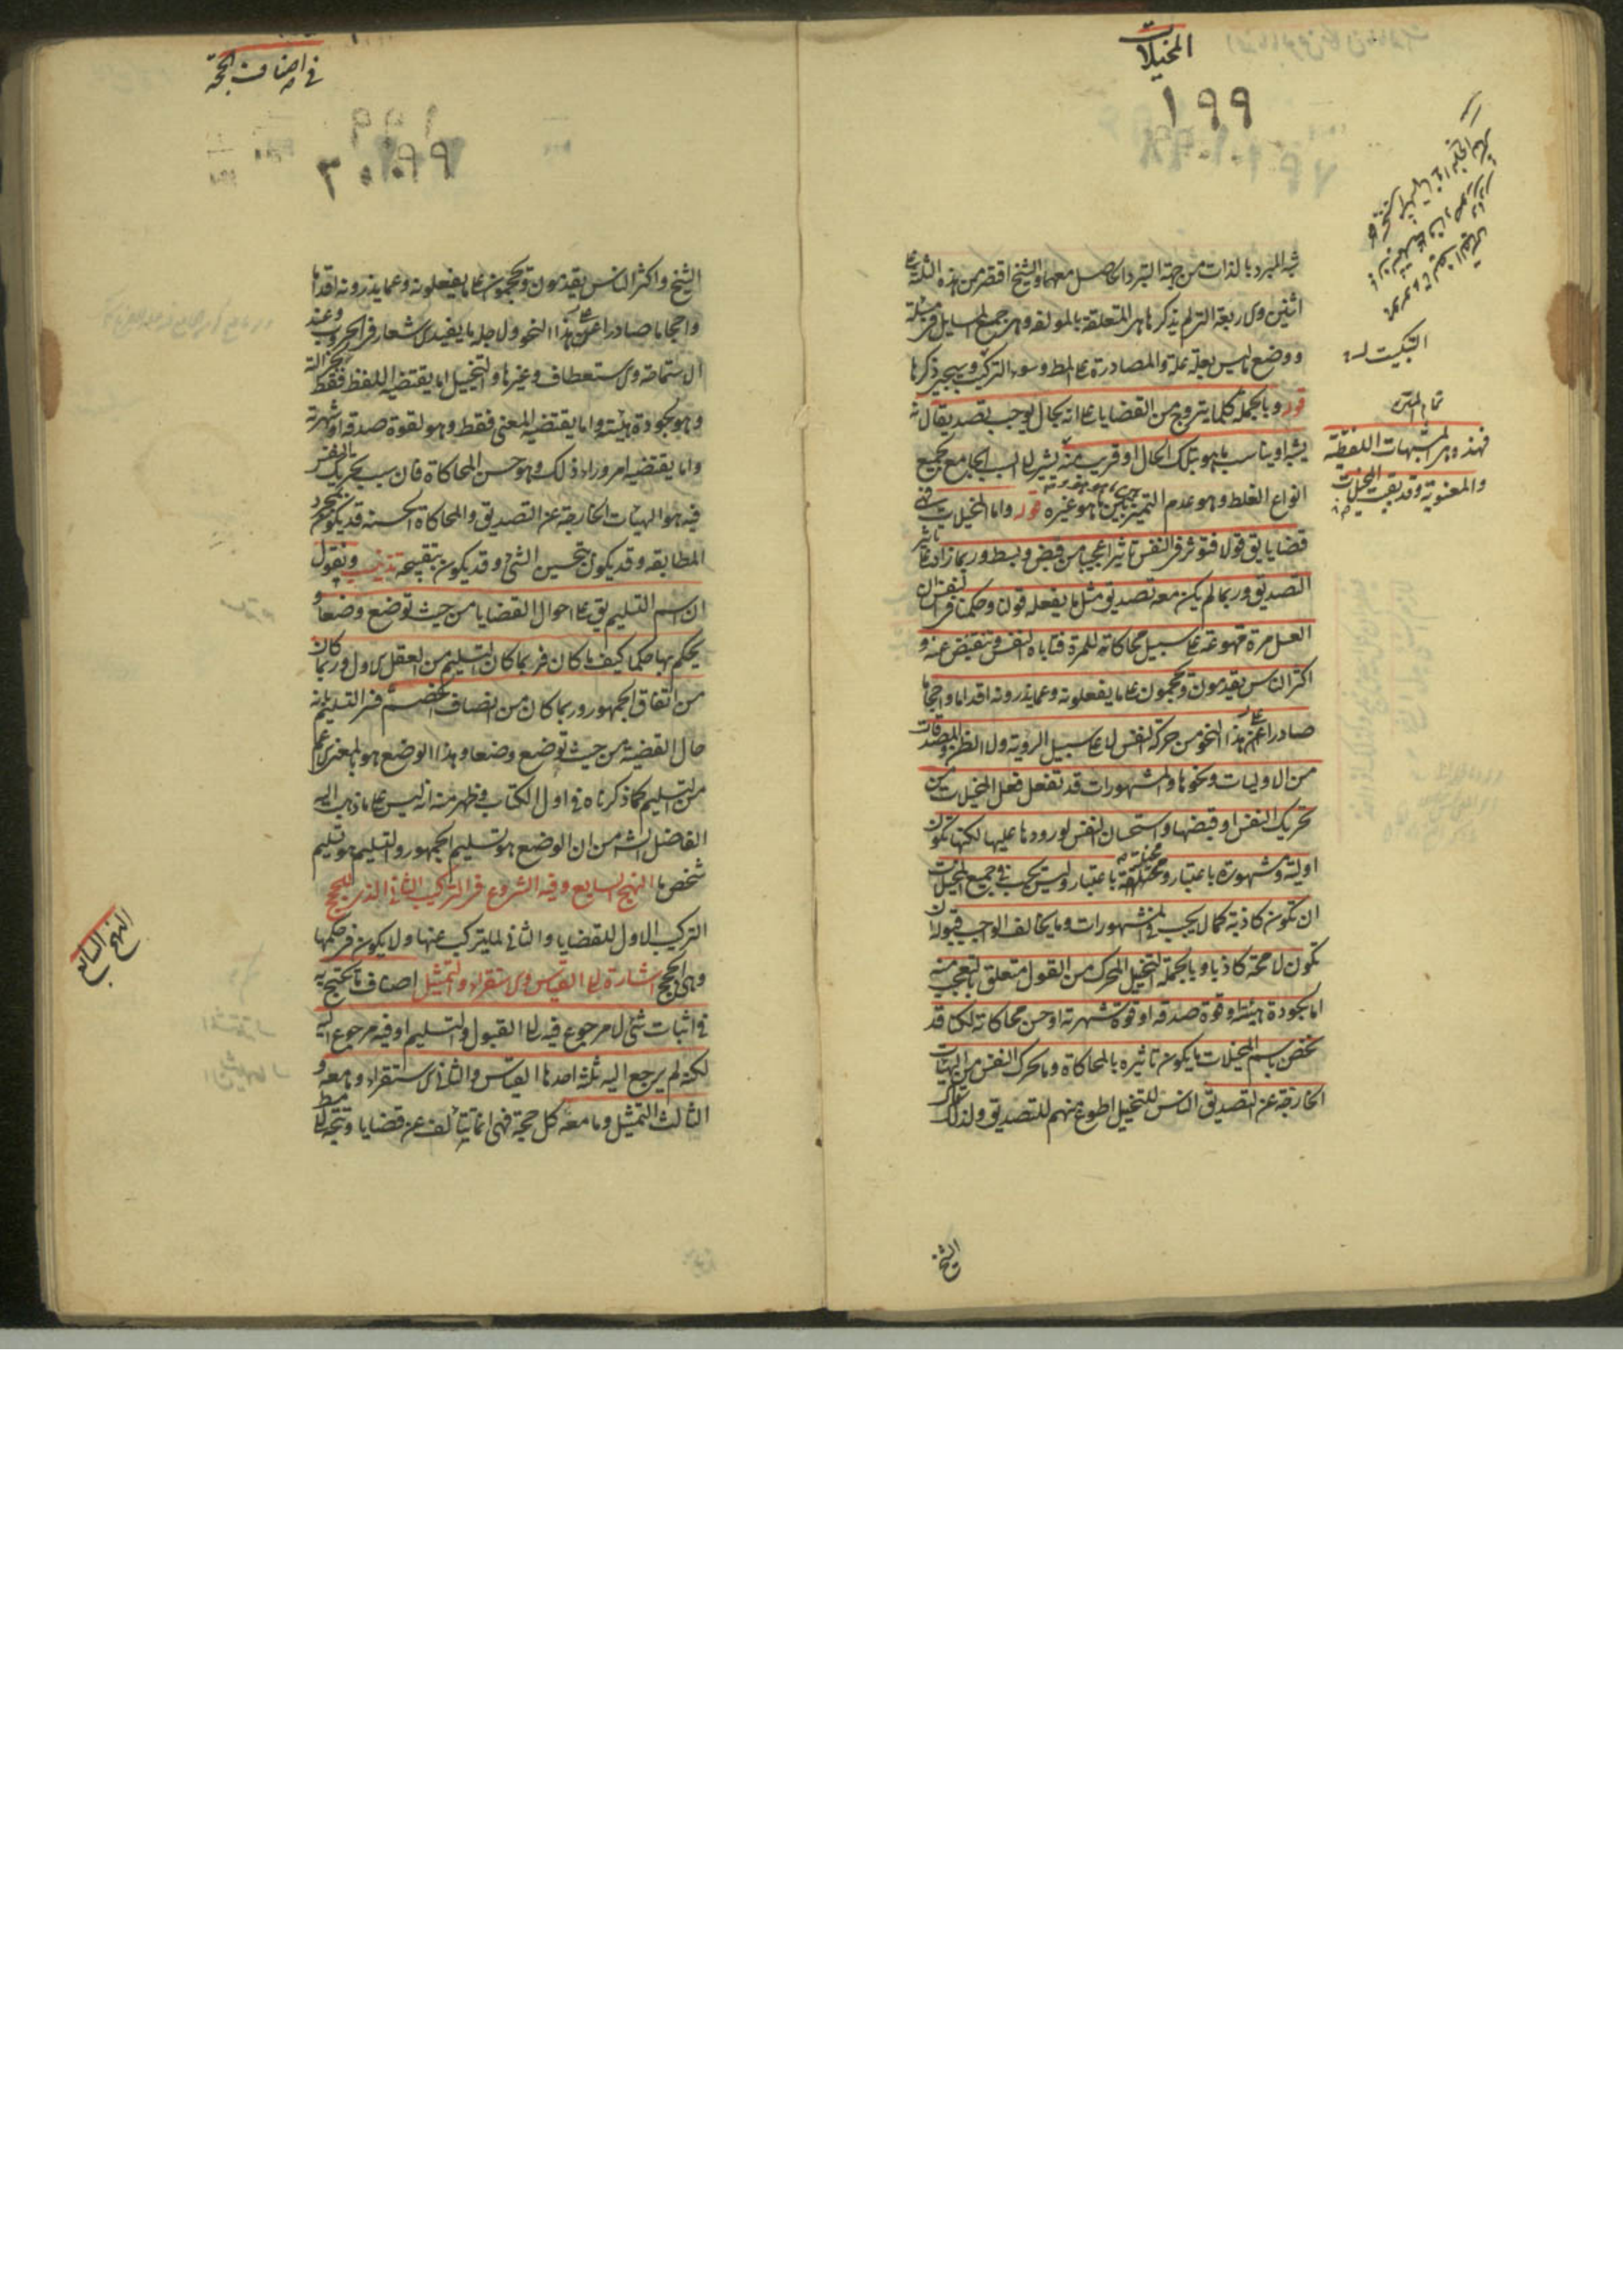 المخيلات
١٩٩
شبه المبرد بالذات من جهة التبرد الحاصل معهما والشيخ اقتصر من هذه الثلثة على
اثنين والاربعة التى لم يذكرها هى المتعلقة بالمؤلفة وهى جمع المسايل فى مسئلة
ووضع ما ليس بعلة علة والمصادرة على المط وسوء التركيب وسيجئ ذكرها
قوله وبالجملة كلما يتروج من القضايا على انه بحال يوجب تصديقا لانه
يشبه او يناسب ما هو بتلك الحال او قريب منه يشير الى السبب الجامع لجميع
انواع الغلط وهو عدم التمييز بين ما هو هو وبين ما هو غيره قوله واما المخيلات فهى
قضايا يق قولا فتوثر فى النفس تاثيرا عجيبا من قبض وبسط وربما زاد على تاثير
التصديق وربما لم يكن معه تصديق مثل ما يفعله قولنا وحكمنا فى النفس ان
العسل مرة مهوعة على سبيل محاكاته للمرة فتاباه النفس وتنقبض عنه و
اكثر الناس يقدمون ويحجمون على ما يفعلونه وعما يذرونه اقداما واحجاما
صادرا عن هذا النحو من حركة النفس لا على سبيل الروية ولا الظن والمصدقات
من الاوليات ونحوها والمشهورات قد تفعل فعل المخيلات من
تحريك النفس او قبضها واستحسان النفس لورودها عليها لكنها تكون
اولية ومشهورة باعتبار ومخيلة باعتبار وليس يجب فى جميع المخيلات
ان تكون كاذبة كما لا يجب فى المشهورات وما يخالف الواجب قبوله ان
تكون لا محة كاذبا وبالجملة التخييل المحرك من القول متعلق بالتعجب منه
اما بجودة هيئته وقوة صدقه او قوة شهرته او حسن محاكاته لكنا قد
نخص باسم المخيلات ما يكون تاثيره بالمحاكاة وما يحرك النفس من الهيات
الخارجة عن التصديق الناس للتخييل اطوع منهم للتصديق ولذلك قال
الشيخ
التبكيت له
تمام المتن
فهذه هى المشبهات اللفظية
والمعنوية وقد بقيت المخيلات
فى اصناف الحجة
الشيخ واكثر الناس يقدمون ويحجمون على ما يفعلونه وعما يذرونه اقداما
واحجاما صادرا عن هذا النحو ولاجله ما يفيد الاشعار فى الحروب وعند
الاستماحة والاستعطاف وغيرها والتخييل اما يقتضيه اللفظ فقط لجزالته
وهو بجودة هيئته واما يقتضيه المعنى فقط وهو لقوة صدقه او شهرته
واما يقتضيه امر وراء ذلك وهو حسن المحاكاة فان سبب تحريك النفس
فيه هو الهيات الخارجة عن التصديق والمحاكاة الحسنة قد يكون بمجرد
المطابقة وقد يكون بتحسين الشئ وقد يكون بتقبيحه تذنيب ونقول
ان اسم التسليم يق على احوال القضايا من حيث توضع وضعا و
يحكم بها حكما كيف ما كان فربما كان التسليم من العقل الاول وربما كان
من اتفاق الجمهور وربما كان من انصاف الخصم فسر التسليم بانه
حال القضية من حيث توضع وضعا وهذا الوضع هو بالمعنى الاعم
من التسليم كما ذكرناه فى اول الكتاب فظهر منه انه ليس على ما ذهب اليه
الفاضل الش من ان الوضع هو تسليم الجمهور والتسليم هو تسليم
شخص ما النهج السابع وفيه الشروع فى التركيب الثانى الذى للحجج
التركيب الاول للقضايا والثانى لما يتركب عنها ولا يكون فى حكمها
وهى الحجج اشارة الى القياس والاستقراء والتمثيل اصناف ما يحتج به
فى اثبات شئ لا مرجوع فيه الى القبول والتسليم او فيه مرجوع اليه
لكنه لم يرجع اليه ثلثة احدها القياس والثانى الاستقراء وما معه و
الثالث التمثيل وما معه كل حجة فهى انما تتألف عن قضايا وتتجه الى مط
النهج السابع